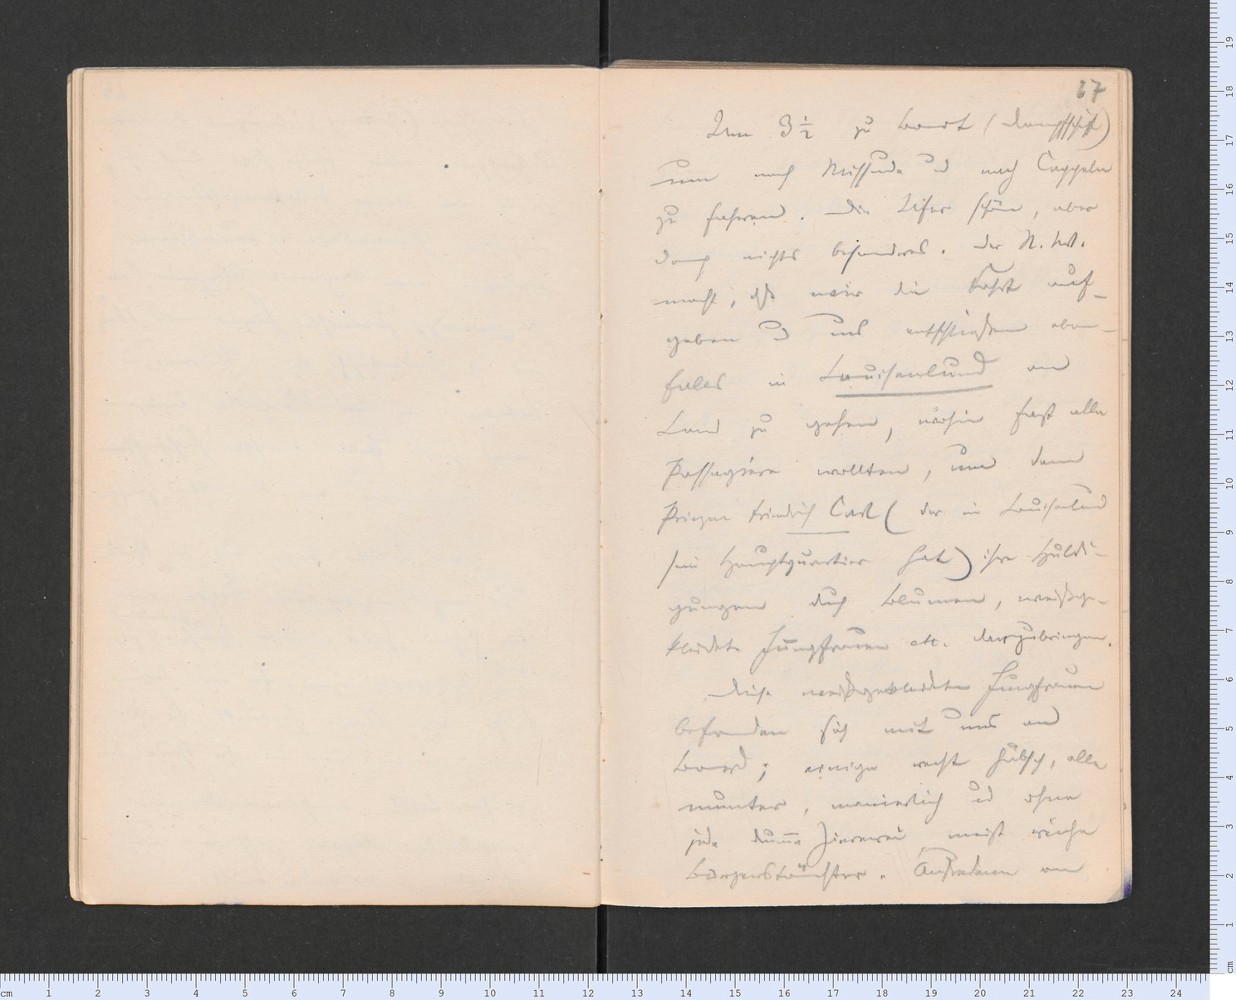 67
Um 3½ zu Boot (Dampfschiff)
um nach Missunde u nach Cappeln
zu fahren. Die Ufer schön, aber
doch nichts besonderes. Der N. W.
macht, dß wir die Fahrt auf-
geben u uns entschließen eben-
falls in Louisenlund an
Land zu gehen, wohin fast alle
Passagiere wollten, um dem
Prinzen Friedrich Carl (der in Louisenlund
sein Hauptquartier hat) ihre Huldi-
gungen durch Blumen, weißge-
kleidete Jungfrauen etc. darzubringen.
Diese weißgekleideten Jungfrauen
befanden sich mit uns an
Bord; einige recht hübsch, alle
munter, manierlich u ohne
jede dumme Ziererei meist reiche
Bürgerstöchter. an